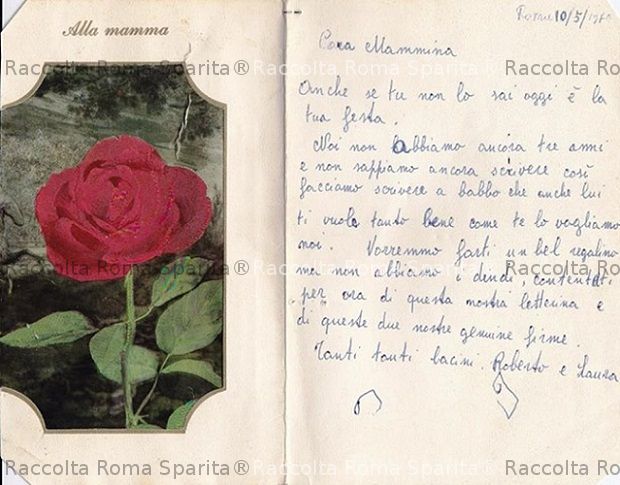 Alla mamma
Roma 10/5/19
Cara Mammina
Anche se tu non lo sai oggi è la
tua festa.
Noi non abbiamo ancora tre anni
e non sappiamo ancora scrivere così
facciamo scrivere a babbo che anche lui
ti vuole tanto bene come te lo vogliamo
noi. Vorremmo farti un bel regalino
ma non abbiamo i dendi, contentati
per ora di questa nostra letterina e
di queste due nostre genuine firme.
Tanti tanti bacini. Roberto e Laura
Raccolta Roma Sparita® Raccolta Roma Sparita® Raccolta Roma
Raccolta Roma Sparita® Raccolta Roma Sparita® Raccolta Roma
Raccolta Roma Sparita® Raccolta Roma Sparita® Raccolta Roma